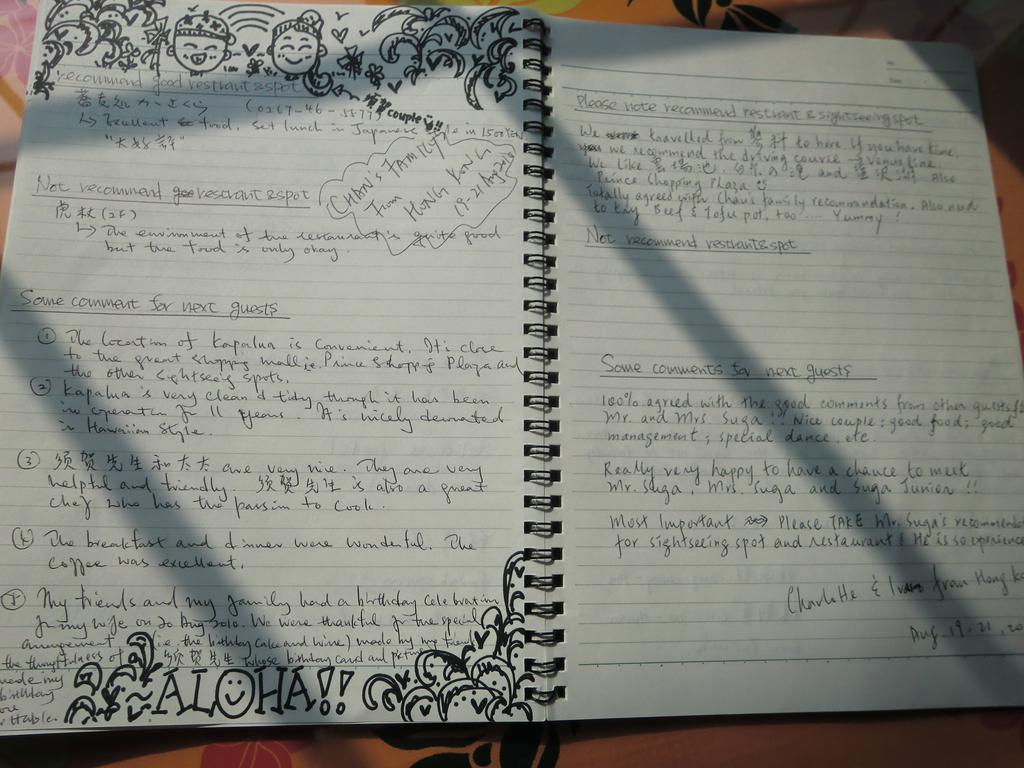 recommend good restrant & spot
(0267-46-5577)
↳ Excellent food, set lunch in Japanese style in 1500 YEN
couple!!
CHAN's FAMILY
From
HONG KONG
19-21 Aug 2010
Not recommend restrant & spot
(2F)
↳ The environment of the restaurant is quite good
but the food is only okay.
Some comment for next guests
① The location of Kapalua is convenient. It's close
to the great shopping mall ie. Prince Shopp'g Plaza and
the other sightseeing spots.
② Kapalua is very clean & tidy though it has been
in operation for 11 years. It's nicely decorated
in Hawaiian Style.
③ 须贺先生和太太 are very nice. They are very
helpful and friendly 须贺先生 is also a great
chef who has the passion to cook.
④ The breakfast and dinner were wonderful. The
coffee was excellent.
⑤ My friends and my family had a birthday celebration
for my wife on 20 Aug 2010. We were thankful for the special
arrangement (i.e. the birthday cake and wine) made my
the thoughtfulness of 须贺先生 whose birthday card and picture
made my
birthday
more
ALOHA!!
Please note recommend restrant & sightseeing spot
We travelled from to here if you have time,
we recommend the driving course → Venus line.
We like and Also
Prince Chopping Plaza
Totally agreed with Chan's family recommandation. Also need
to try Beef & Tofu pot, too .... Yummy!
Not recommend restrant & spot
Some comments for next guests
100% agreed with the good comments from other guests
Mr. and Mrs. Suga!! Nice couple; good food; good
management; special dance, etc.
Really very happy to have a chance to meet
Mr. Suga, Mrs. Suga and Suga Junior!!
Most Important Please TAKE Mr. Suga's recommend
for sightseeing spot and restaurant! He is so experience
Charlotte & Ivan from Hong Ko
Aug. 19-21, 20